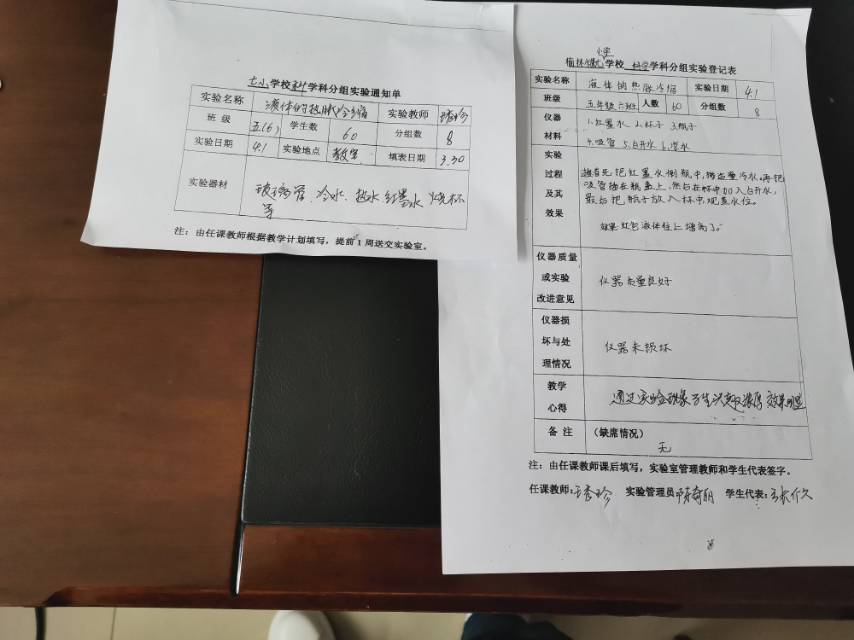 七小学校科学学科分组实验通知单
实验名称 液体的热胀冷缩 实验教师
班级 五(6) 学生数 60 分组数 8
实验日期 4.1 实验地点 教室 填表日期 3.30
实验器材 玻璃管、冷水、热水 红墨水 烧杯
等
注：由任课教师根据教学计划填写，提前1周送交实验室。
学校 科学学科分组实验登记表
实验名称 液体的热胀冷缩 实验日期 4.1
班级 五年级六班 人数 60 分组数 8
仪器
材料
1.红墨水 2.杯子 3.瓶子
4.吸管 5.白开水 6.冷水
实验
过程
及其
效果
首先把红墨水倒瓶中,稀适量冷水,再把
吸管插在瓶盖上,然后在杯中加入白开水,
最后把瓶子放入杯中观察水位。
效果:红色液体柱上增高了。
仪器质量
或实验
改进意见
仪器质量良好
仪器损
坏与处
理情况
仪器未损坏
教学
心得
通过实验现象学生兴趣浓厚 效果明显
备注 （缺席情况）
无
注：由任课教师课后填写，实验室管理教师和学生代表签字。
任课教师: 实验管理员 学生代表: